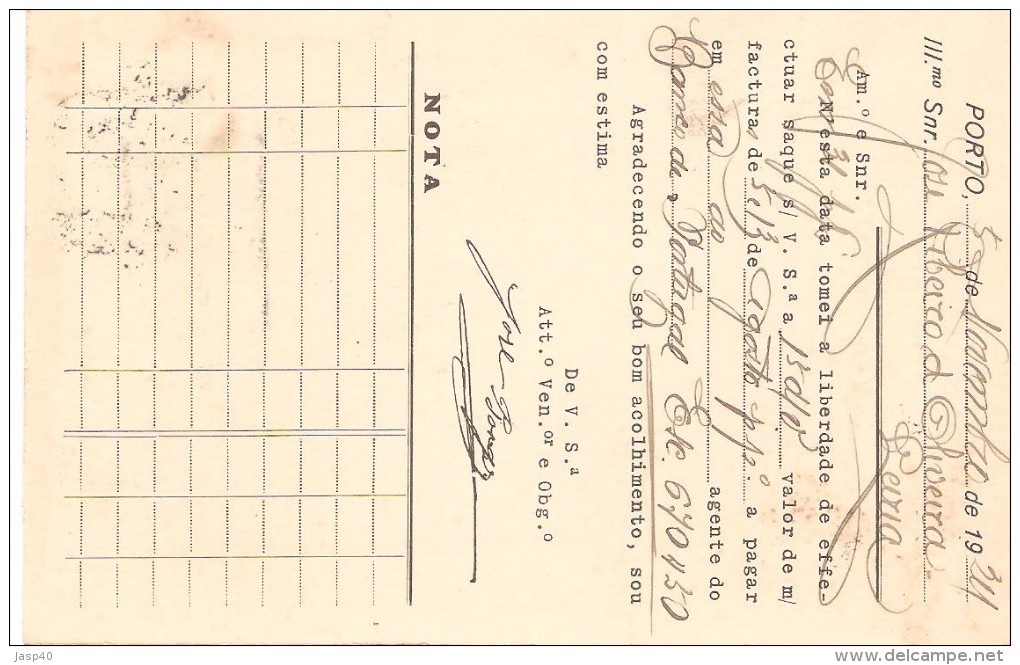 PORTO, 5 de Novembro de 1924
Ill.mo Snr. José Ribeiro d'Oliveira
Leiria
Am.º e Snr.
Nesta data tomei a liberdade de effe-
ctuar saque s/ V. S.ª a 15 d/v valor de m/
facturas de 5, 13 de Agosto p.pº. a pagar
em essa ao agente do
Banco de Portugal Esc. 670$50
Agradecendo o seu bom acolhimento, sou
com estima
De V. S.ª
Att.º Ven.or e Obg.º
José
NOTA
jasp40
www.delcampe.net